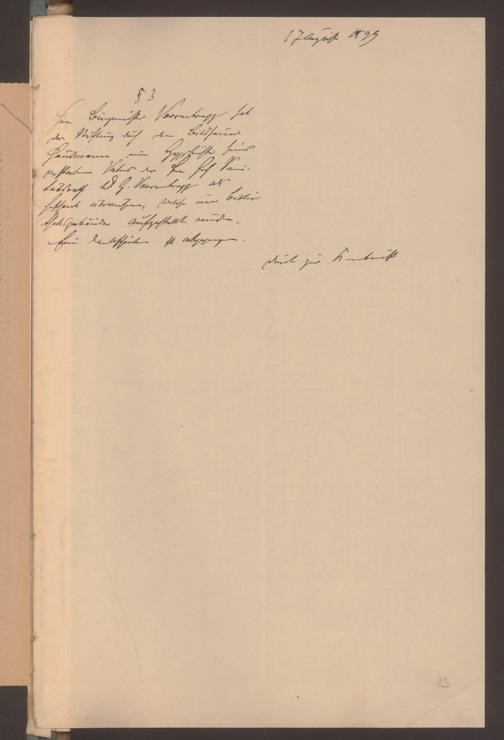 17 August 1899
§ 3
Herr Bürgermeister Varrentrapp hat
der Stiftung durch den Bildhauer
Hausmann eine Gypsbüste seines
verstorbenen Vaters des Herrn Geh. Sani-
tätsrath Dr G. Varrentrapp als
Geschenk überwiesen, welche im Biblio-
theksgebäude aufgestellt wurde.
Ein Dankschreiben ist abgegangen.
dient zur Kenntniß
23